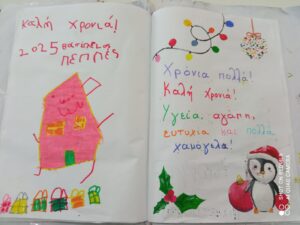 Καλή χρονιά!
2025
ΠΕΠΠΕΣ
Χρόνια πολλά!
Καλή Χρονιά!
Υγεία, αγάπη,
ευτυχία και πολλά
χαμόγελα!